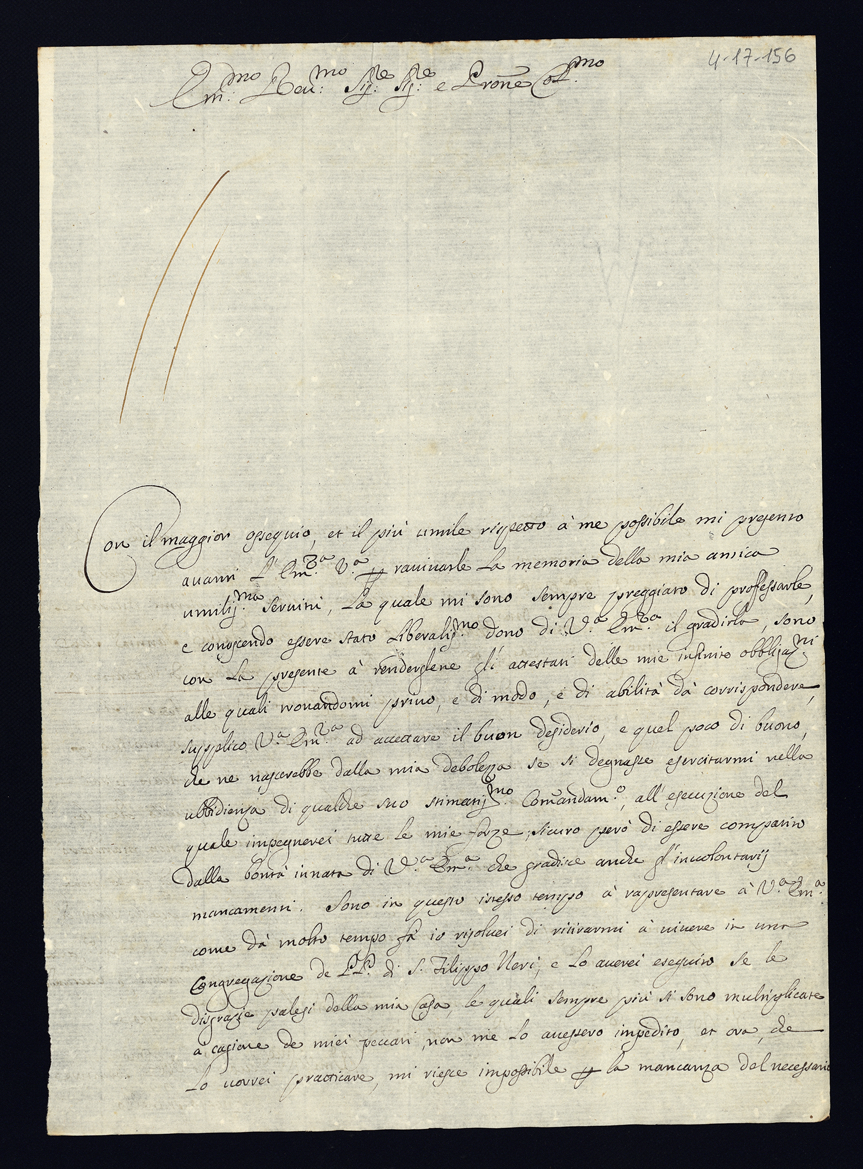 4-17-156
Em:mo Reu:mo Sig:re Sig:re e Prone Col:mo
Con il maggior ossequio, et il più umile rispetto à me possibile mi presento
auanti l'Em:za V:a p rauiuarle la memoria della mia antica
umiliss:ma seruitù, la quale mi sono sempre preggiato di professarle,
e conoscendo essere stato liberaliss:mo dono di V:a Em:za il gradirla, sono
con la presente à renderglene gl'attestati delle mie infinite obbligaz:ni
alle quali trouandomi priuo, e di modo, e di abilità dà corrispondere,
supplico V:a Em:za ad accettare il buon desiderio, e quel poco di buono,
che ne nascerebbe dalla mia debolezza se si degnasse esercitarmi nella
ubbidienza di qualche suo stimatiss:mo Comandam:o, all'esecuzione del
quale impegnerei tutte le mie forze, sicuro però di essere compatito
dalla bontà innata di V:a Em:za che gradice anche gl'inuolontarij
mancamenti. Sono in questo istesso tempo à rapresentare à V:a Em:za
come dà molto tempo fà io risoluei di ritirarmi à uiuere in una
Congregazione de PP. di S. Filippo Neri, e lo auerei eseguito se le
disgrazie palesi della mia Casa, le quali sempre più si sono multiplicate
à cagione de miei peccati, non me lo auessero impedito, et ora, che
lo uorrei practicare, mi riesce impossibile p la mancanza del necessario